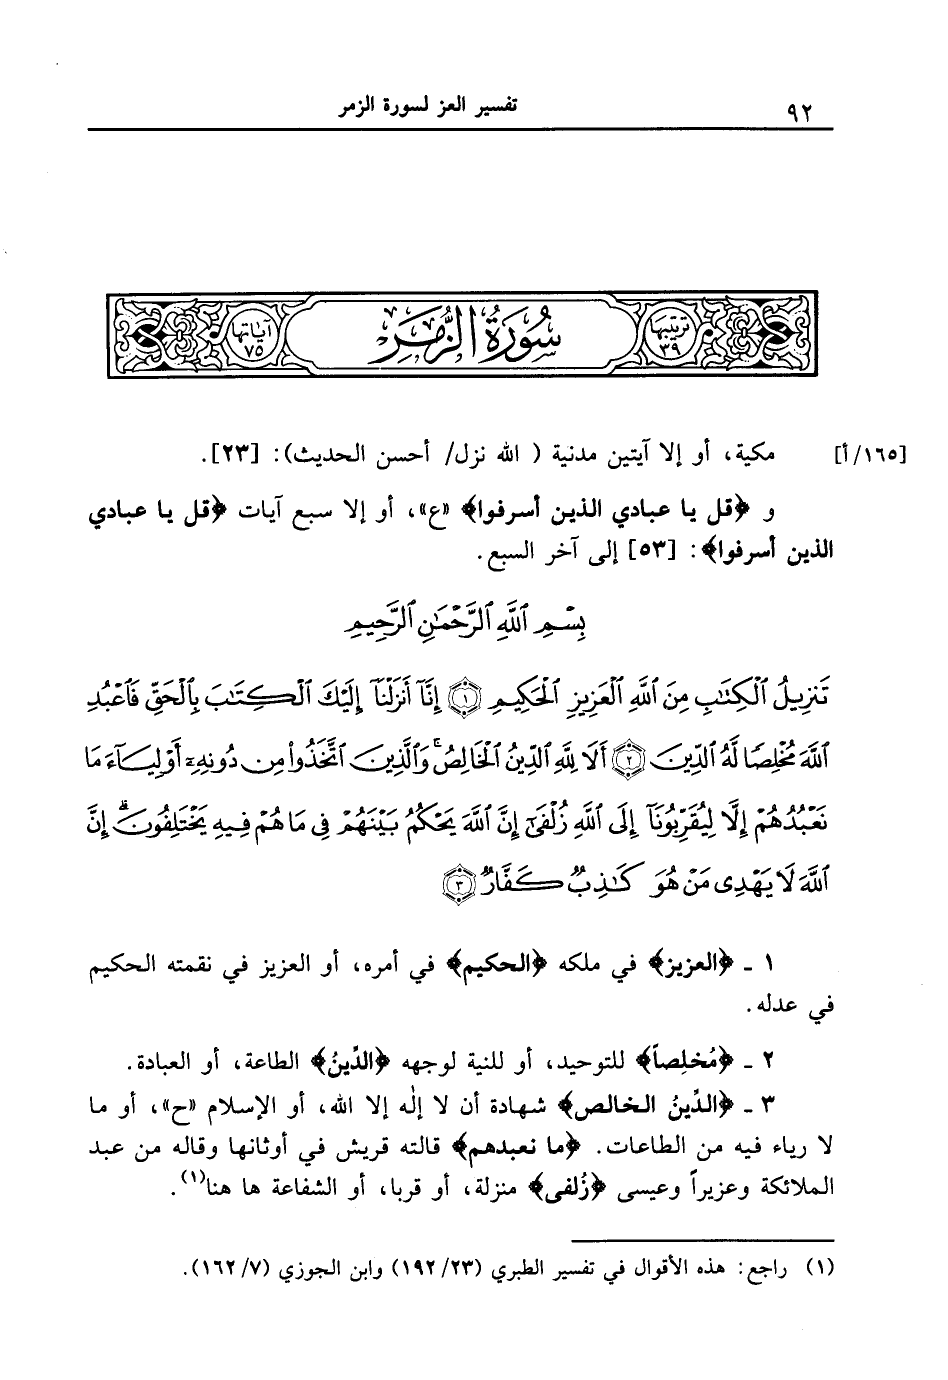 ٩٢
تفسير العز لسورة الزمر
ترتيبها ٣٩
سُورَةُ الزُّمَرِ
آياتها ٧٥
[١٦٥/أ]
مكية، أو إلا آيتين مدنية ( الله نزل/ أحسن الحديث): [٢٣].
و ﴿قل يا عبادي الذين أسرفوا﴾ «ع»، أو إلا سبع آيات ﴿قل يا عبادي
الذين أسرفوا﴾: [٥٣] إلى آخر السبع.
بِسْمِ ٱللَّهِ ٱلرَّحْمَٰنِ ٱلرَّحِيمِ
تَنزِيلُ ٱلْكِتَٰبِ مِنَ ٱللَّهِ ٱلْعَزِيزِ ٱلْحَكِيمِ ١ إِنَّآ أَنزَلْنَآ إِلَيْكَ ٱلْكِتَٰبَ بِٱلْحَقِّ فَٱعْبُدِ
ٱللَّهَ مُخْلِصًا لَّهُ ٱلدِّينَ ٢ أَلَا لِلَّهِ ٱلدِّينُ ٱلْخَالِصُ ۚ وَٱلَّذِينَ ٱتَّخَذُوا۟ مِن دُونِهِۦٓ أَوْلِيَآءَ مَا
نَعْبُدُهُمْ إِلَّا لِيُقَرِّبُونَآ إِلَى ٱللَّهِ زُلْفَىٰٓ إِنَّ ٱللَّهَ يَحْكُمُ بَيْنَهُمْ فِى مَا هُمْ فِيهِ يَخْتَلِفُونَ ۗ إِنَّ
ٱللَّهَ لَا يَهْدِى مَنْ هُوَ كَٰذِبٌ كَفَّارٌ ٣
١ ـ ﴿العزيز﴾ في ملكه ﴿الحكيم﴾ في أمره، أو العزيز في نقمته الحكيم
في عدله.
٢ ـ ﴿مُخلِصاً﴾ للتوحيد، أو للنية لوجهه ﴿الدِّينُ﴾ الطاعة، أو العبادة.
٣ ـ ﴿الدِّينُ الخالص﴾ شهادة أن لا إلٰه إلا الله، أو الإسلام «ح»، أو ما
لا رياء فيه من الطاعات. ﴿ما نعبدهم﴾ قالته قريش في أوثانها وقاله من عبد
الملائكة وعزيراً وعيسى ﴿زُلفى﴾ منزلة، أو قربا، أو الشفاعة ها هنا(١).
(١) راجع: هذه الأقوال في تفسير الطبري (١٩٢/٢٣) وابن الجوزي (١٦٢/٧).